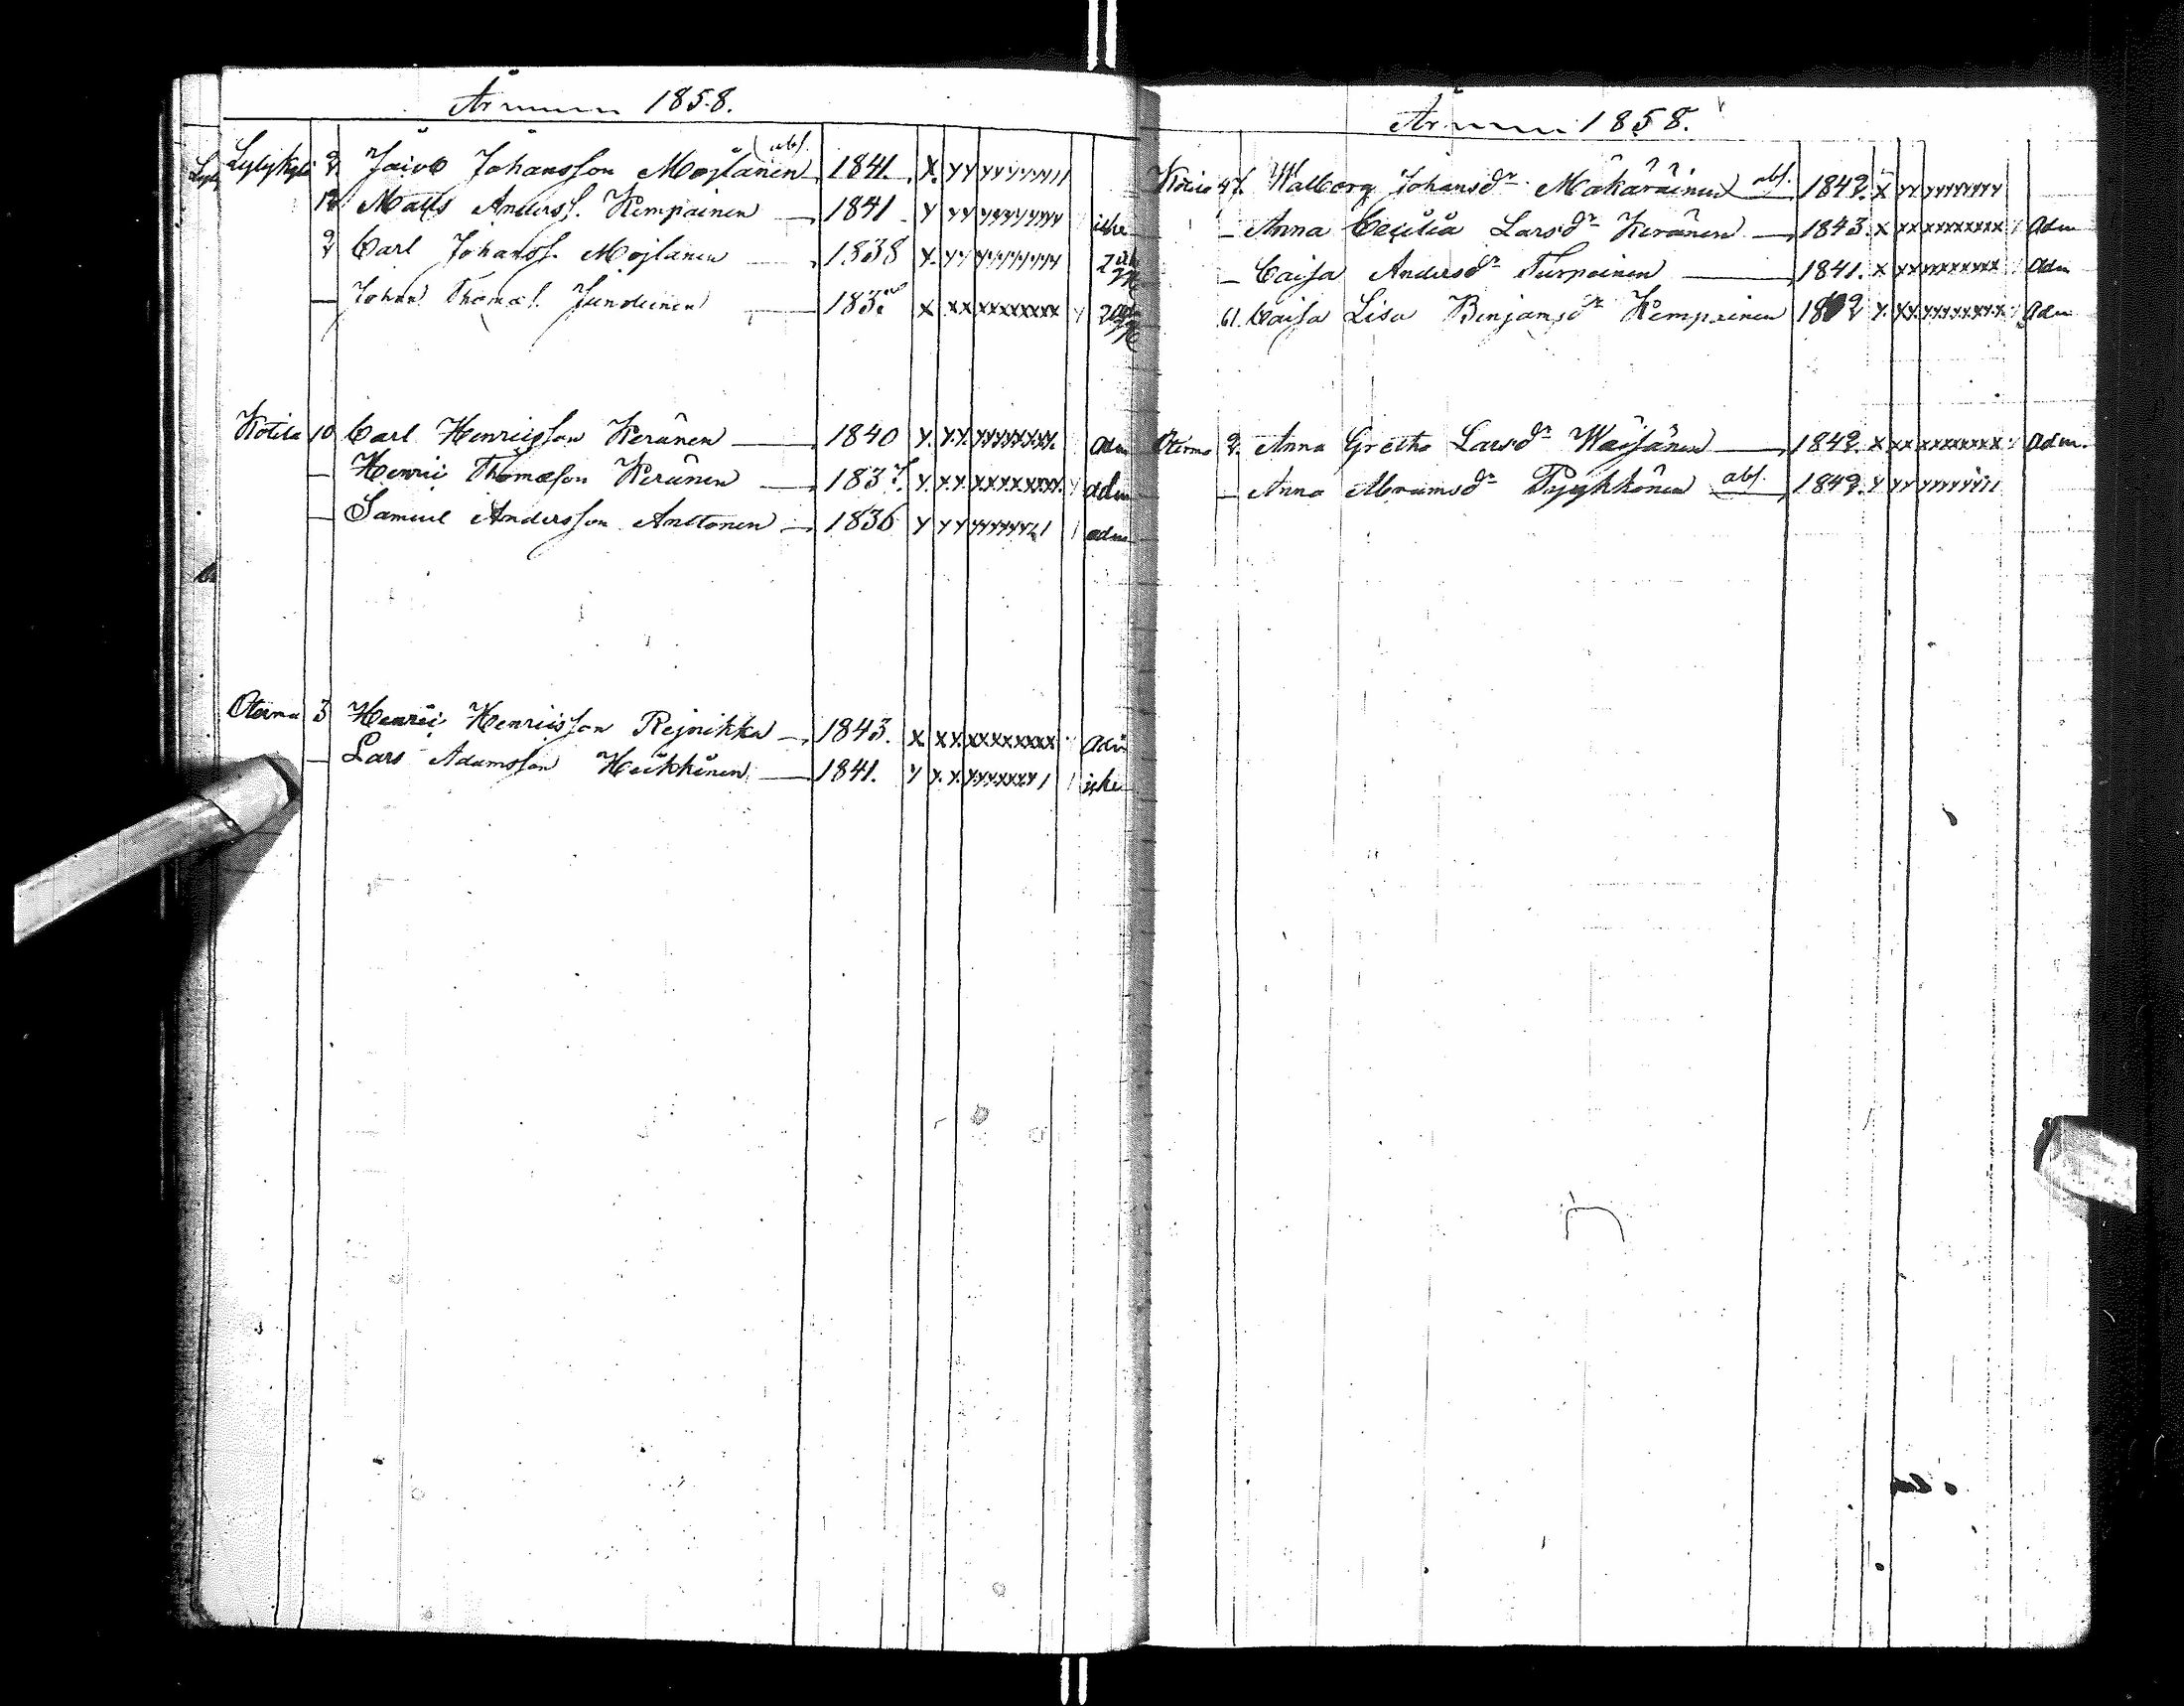 År 1858.
Lylykylä 9 Jacob Johansson Mojlanen abs. 1841. X. YY
12 Matts Anderss. Kempainen — 1841 Y YY icke
9 Carl Johanss. Mojlanen — 1838 Y. YY
— Johan Thomæs. Juntunen — 183 X XX XXXXXXXXX
Kotila 10 Carl Henricsson Keränen — 1840 Y. Y.Y. adm
— Henric Thomæson Keränen — 1837. Y. Y.Y. XXXXXXXX adm
— Samuel Andersson Anttonen — 1836 Y YY adm
Oterma 3 Henric Henricsson Rejnikka — 1843. X XX XXXXXXXXX adm
— Lars Adamsson Heikkinen — 1841. Y Y.X icke
År 1858.
47. Walborg Johansdr Mäkäräinen abs. 1842. X YY
— Anna Cecilia Larsdr Keränen — 1843. X XX XXXXXXXXX adm
— Caisa Andersdr Turpainen — 1841. X XX adm
61. Caisa Lisa Benjamsdr Kempainen 1842 Y. XX adm
Oterma 9. Anna Gretha Larsdr Waisänen — 1842. X XX XXXXXXXXX adm.
— Anna Abramsdr Pyykkönen abs. 1842. Y YY